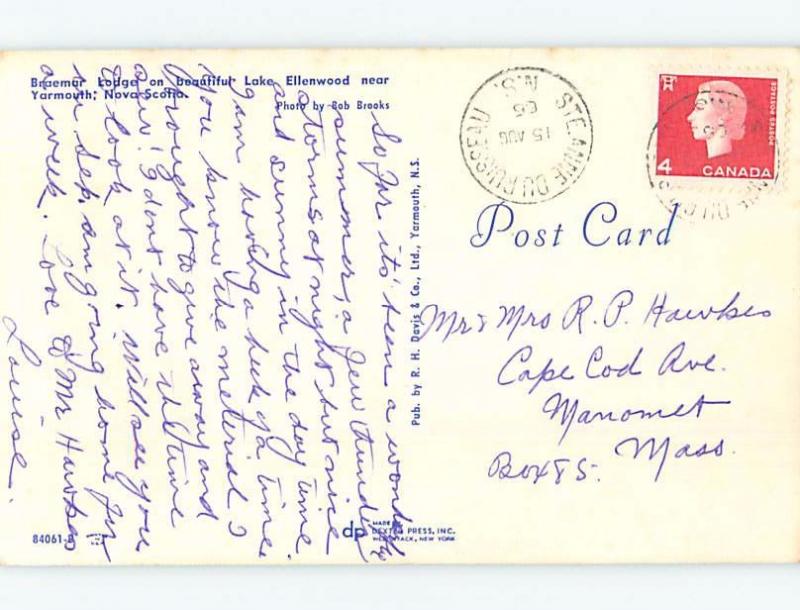 Braemar Lodge on beautiful Lake Ellenwood near
Yarmouth, Nova Scotia.
Photo by Bob Brooks
So far its been a wonderful
summer, a few thunder
storms at night but nice
and sunny in the day time.
I am having a heck of a time.
You know the meterial I
brought to give away and
sew! I dont have the time
to look at it. Will see you
in Sep, am going home for
a week. Love to Mr Hawkes
Louise.
84061-B
Pub. by R. H. Davis & Co., Ltd., Yarmouth, N.S.
dp
MADE BY
DEXTER PRESS, INC.
WEST NYACK, NEW YORK
STE ANNE DU RUISSEAU
15 AUG
65
N.S.
POSTES POSTAGE
4 CANADA
Post Card
Mr & Mrs R. P. Hawkes
Cape Cod Ave.
Manomet
Mass.
Box 85.